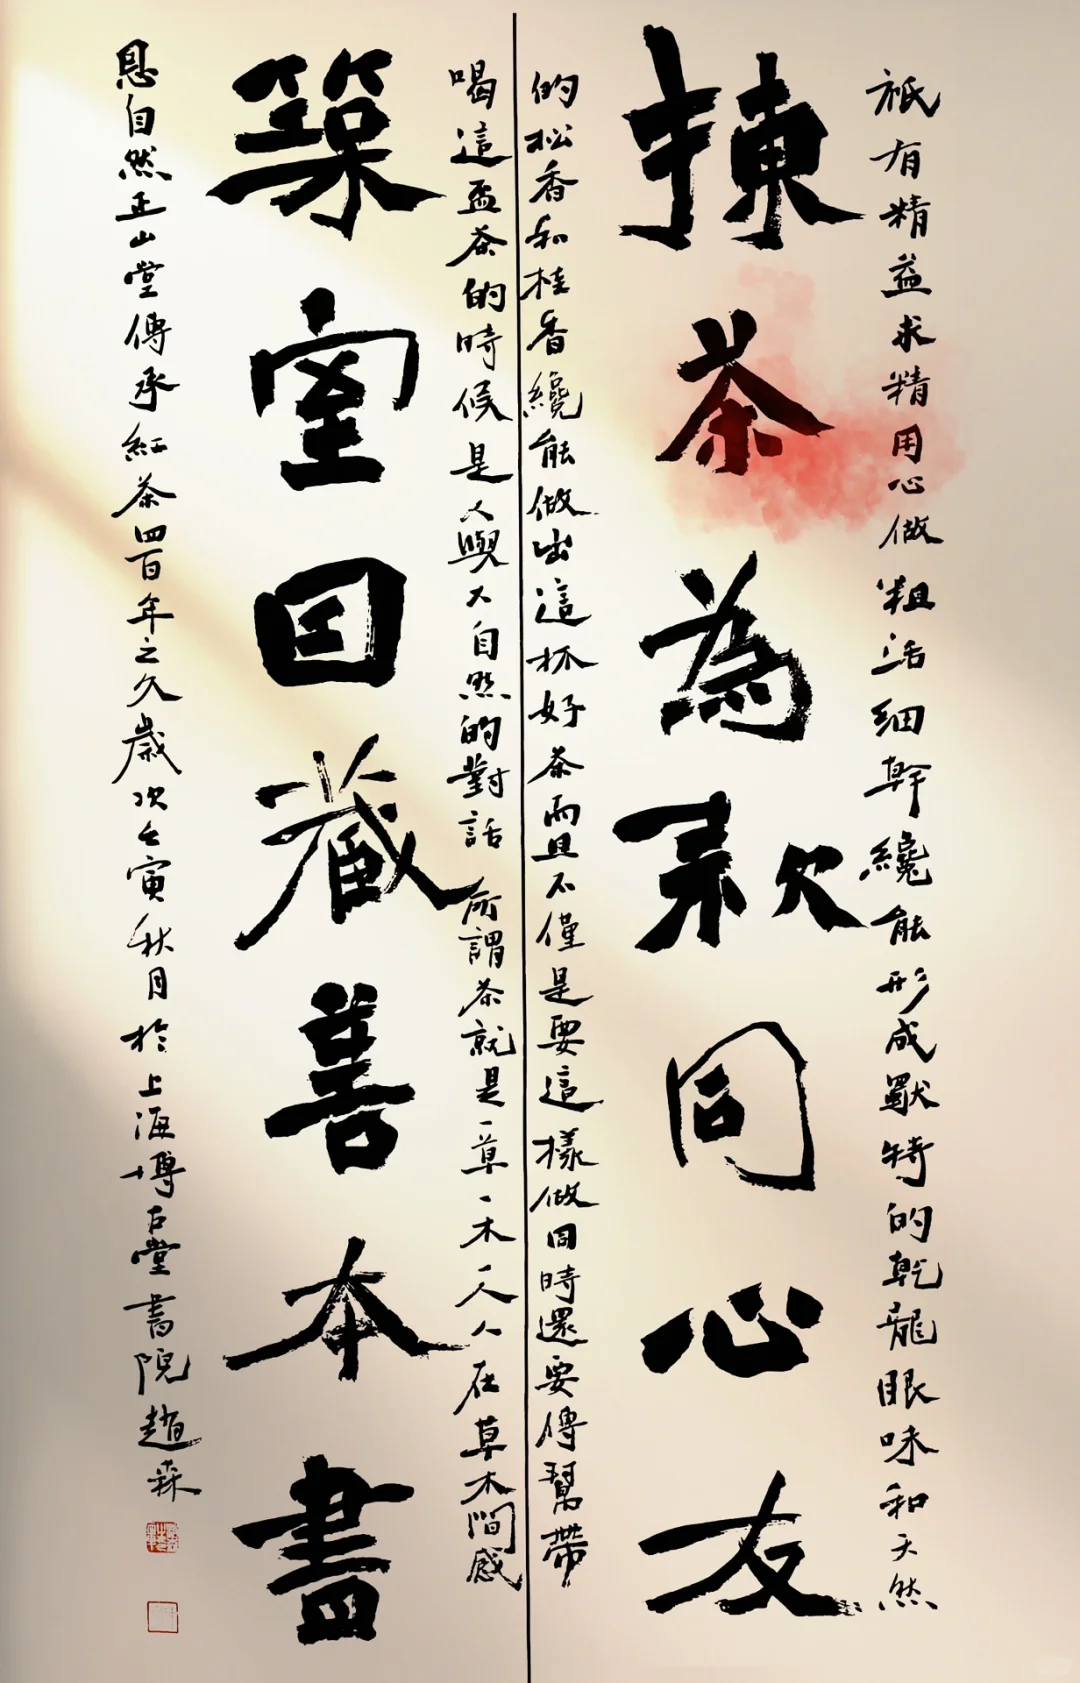 祇有精益求精用心做粗活細幹纔能形成獸特的乾龍眼味和天然
揀茶為款同心友
的松香和桂香纔能做出這杯好茶而且不僅是要這樣做同時還要傳幫帶
喝這盃茶的時候是人與大自然的對話 所謂茶就是一草一木一人人在草木間感
築室因藏善本書
恩自然正山堂傳承紅茶四百年之久歲次壬寅秋月於上海博古堂書院趙森